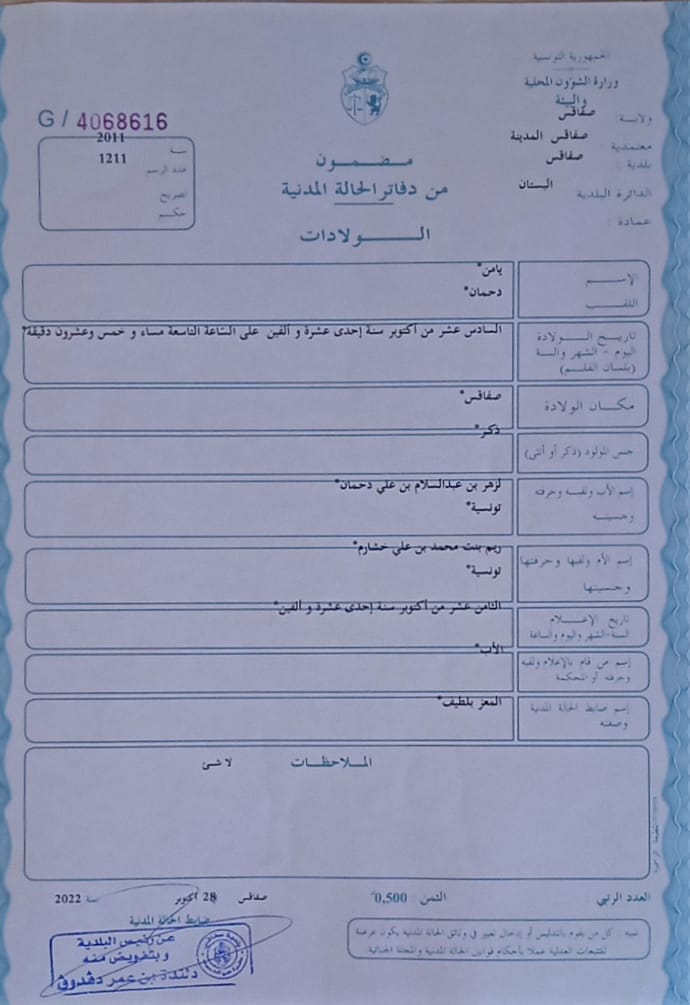 الجمهورية التونسية
وزارة الشؤون المحلية
والبيئة
ولاية : صفاقس
معتمدية : صفاقس المدينة
بلدية : صفاقس
الدائرة البلدية البستان
عمادة :
G / 4068616
سنة 2011
عدد الرسم 1211
تصريح
حكم
مضمون
من دفاتر الحالة المدنية
الولادات
الإسم يامن*
اللقب دحمان*
تاريخ الولادة السادس عشر من أكتوبر سنة إحدى عشرة و ألفين على السّاعة التاسعة مساء و خمس وعشرون دقيقة*
اليوم - الشهر والسنة
(بلسان القلم)
مكان الولادة صفاقس*
جنس المولود (ذكر أو أنثى) ذكر*
إسم الأب ولقبه وحرفته لزهر بن عبدالسلام بن علي دحمان*
وجنسيته تونسية*
إسم الأم ولقبها وحرفتها ريم بنت محمد بن علي خشارم*
وجنسيتها تونسية*
تاريخ الإعلام الثامن عشر من أكتوبر سنة إحدى عشرة و ألفين*
السنة-الشهر واليوم والساعة
إسم من قام بالإعلام ولقبه الأب*
وحرفته أو المحكمة
إسم ضابط الحالة المدنية المعز بلطيف*
وصفته
الملاحظات لا شئ
المطبعة الرسمية
العدد الرتبي : الثمن : 0,500د صفاقس في 28 أكتوبر سنة 2022
ضابط الحالة المدنية
تنبيه : كل من يقوم بالتدليس أو إدخال تغيير في وثائق الحالة المدنية يكون عرضة
للتتبعات العدلية عملا بأحكام قوانين الحالة المدنية والمجلة الجنائية.
عن رئيس البلدية
وبتفويض منه
دلندة بن عمر دڤدوڤ